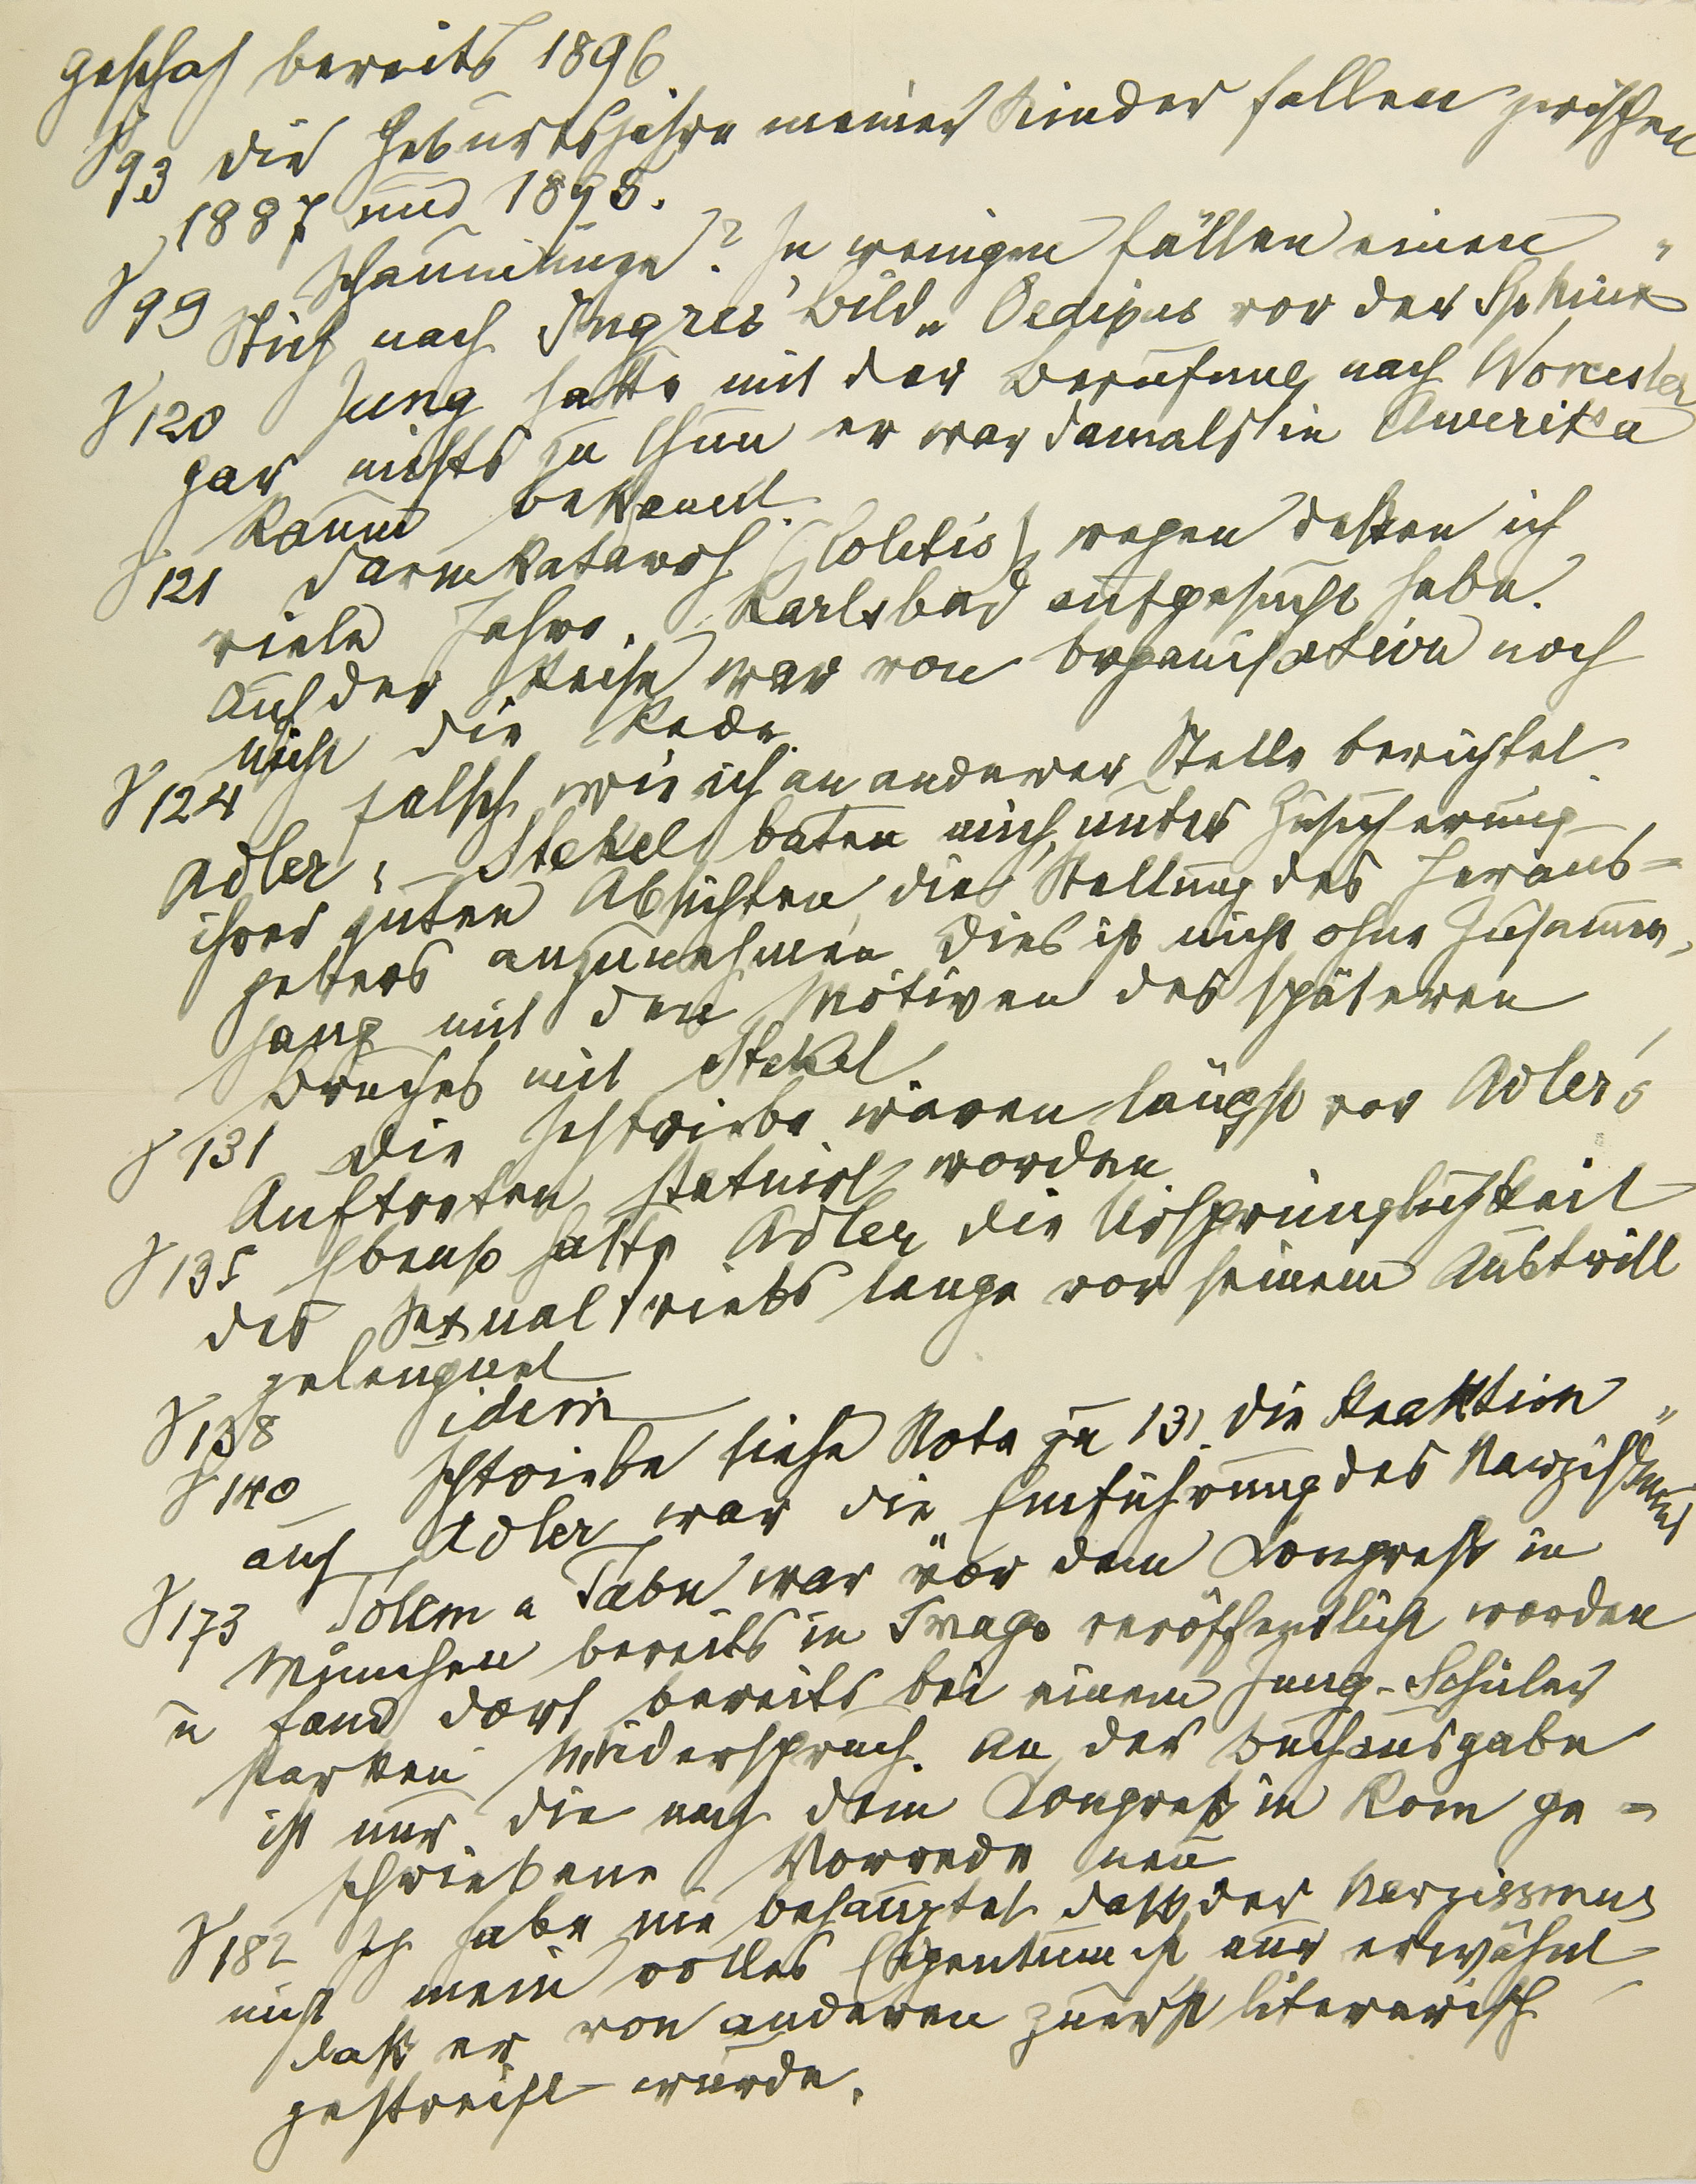 geschah bereits 1896
S 93 die Geburtsjahre meiner Kinder fallen zwischen
1887 und 1895.
S 99 Schaumünze? In wenigen Fällen einen
Stich nach Ingres' Bild „Oedipus vor der Sphinx"
S 120 Jung hatte mit der Berufung nach Worcester
gar nichts zu thun er war damals in Amerika
kaum bekannt.
S 121 Darmkatarrh (Colitis) wegen dessen ich
viele Jahre Karlsbad aufgesucht habe.
Auf der Reise war von Organisation noch
nicht die Rede.
S 124 falsch, wie ich an anderer Stelle berichtet.
Adler u Stekel baten mich, unter Zusicherung
ihrer guten Absichten, die Stellung des Heraus=
gebers anzunehmen. Dies ist nicht ohne Zusammen-
hang mit den Motiven des späteren
Bruches mit Stekel.
S 131 Die Ichtriebe waren längst vor Adler's
Auftreten statuirt worden.
S 135 Ebenso hatte Adler die Ursprünglichkeit
des Sexualtriebs lange vor seinem Austritt
geleugnet
S 138 idem
S 140 Ichtriebe siehe Nota zu 131. Die Reaktion
auf Adler war die „Einführung des Narzißmus"
S 173 Totem u Tabu war vor dem Congress in
München bereits in Imago veröffentlicht worden
u fand dort bereits bei einem Jung-Schüler
starken Widerspruch. An der Buchausgabe
ist nur die nach dem Congreß in Rom ge=
schriebene Vorrede neu
S 182 Ich habe nie behauptet dass der Narzissmus
nicht mein volles Eigentum ist nur erwähnt
dass er von anderen zuerst literarisch
gestreift wurde.